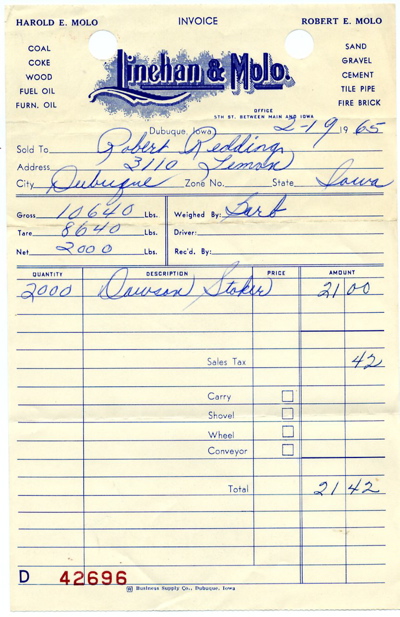 HAROLD E. MOLO INVOICE ROBERT E. MOLO
COAL
COKE
WOOD
FUEL OIL
FURN. OIL
Linehan & Molo.
SAND
GRAVEL
CEMENT
TILE PIPE
FIRE BRICK
OFFICE
5TH ST. BETWEEN MAIN AND IOWA
Dubuque, Iowa 2-19 1965
Sold To Robert Redding
Address 3110 Lemon
City Dubuque Zone No. State Iowa
Gross 10640 Lbs. Weighed By: Barb
Tare 8640 Lbs. Driver:
Net 2000 Lbs. Rec'd. By:
QUANTITY DESCRIPTION PRICE AMOUNT
2000 Dawson Stoker 21 00
Sales Tax 42
Carry
Shovel
Wheel
Conveyor
Total 21 42
D 42696
Business Supply Co., Dubuque, Iowa